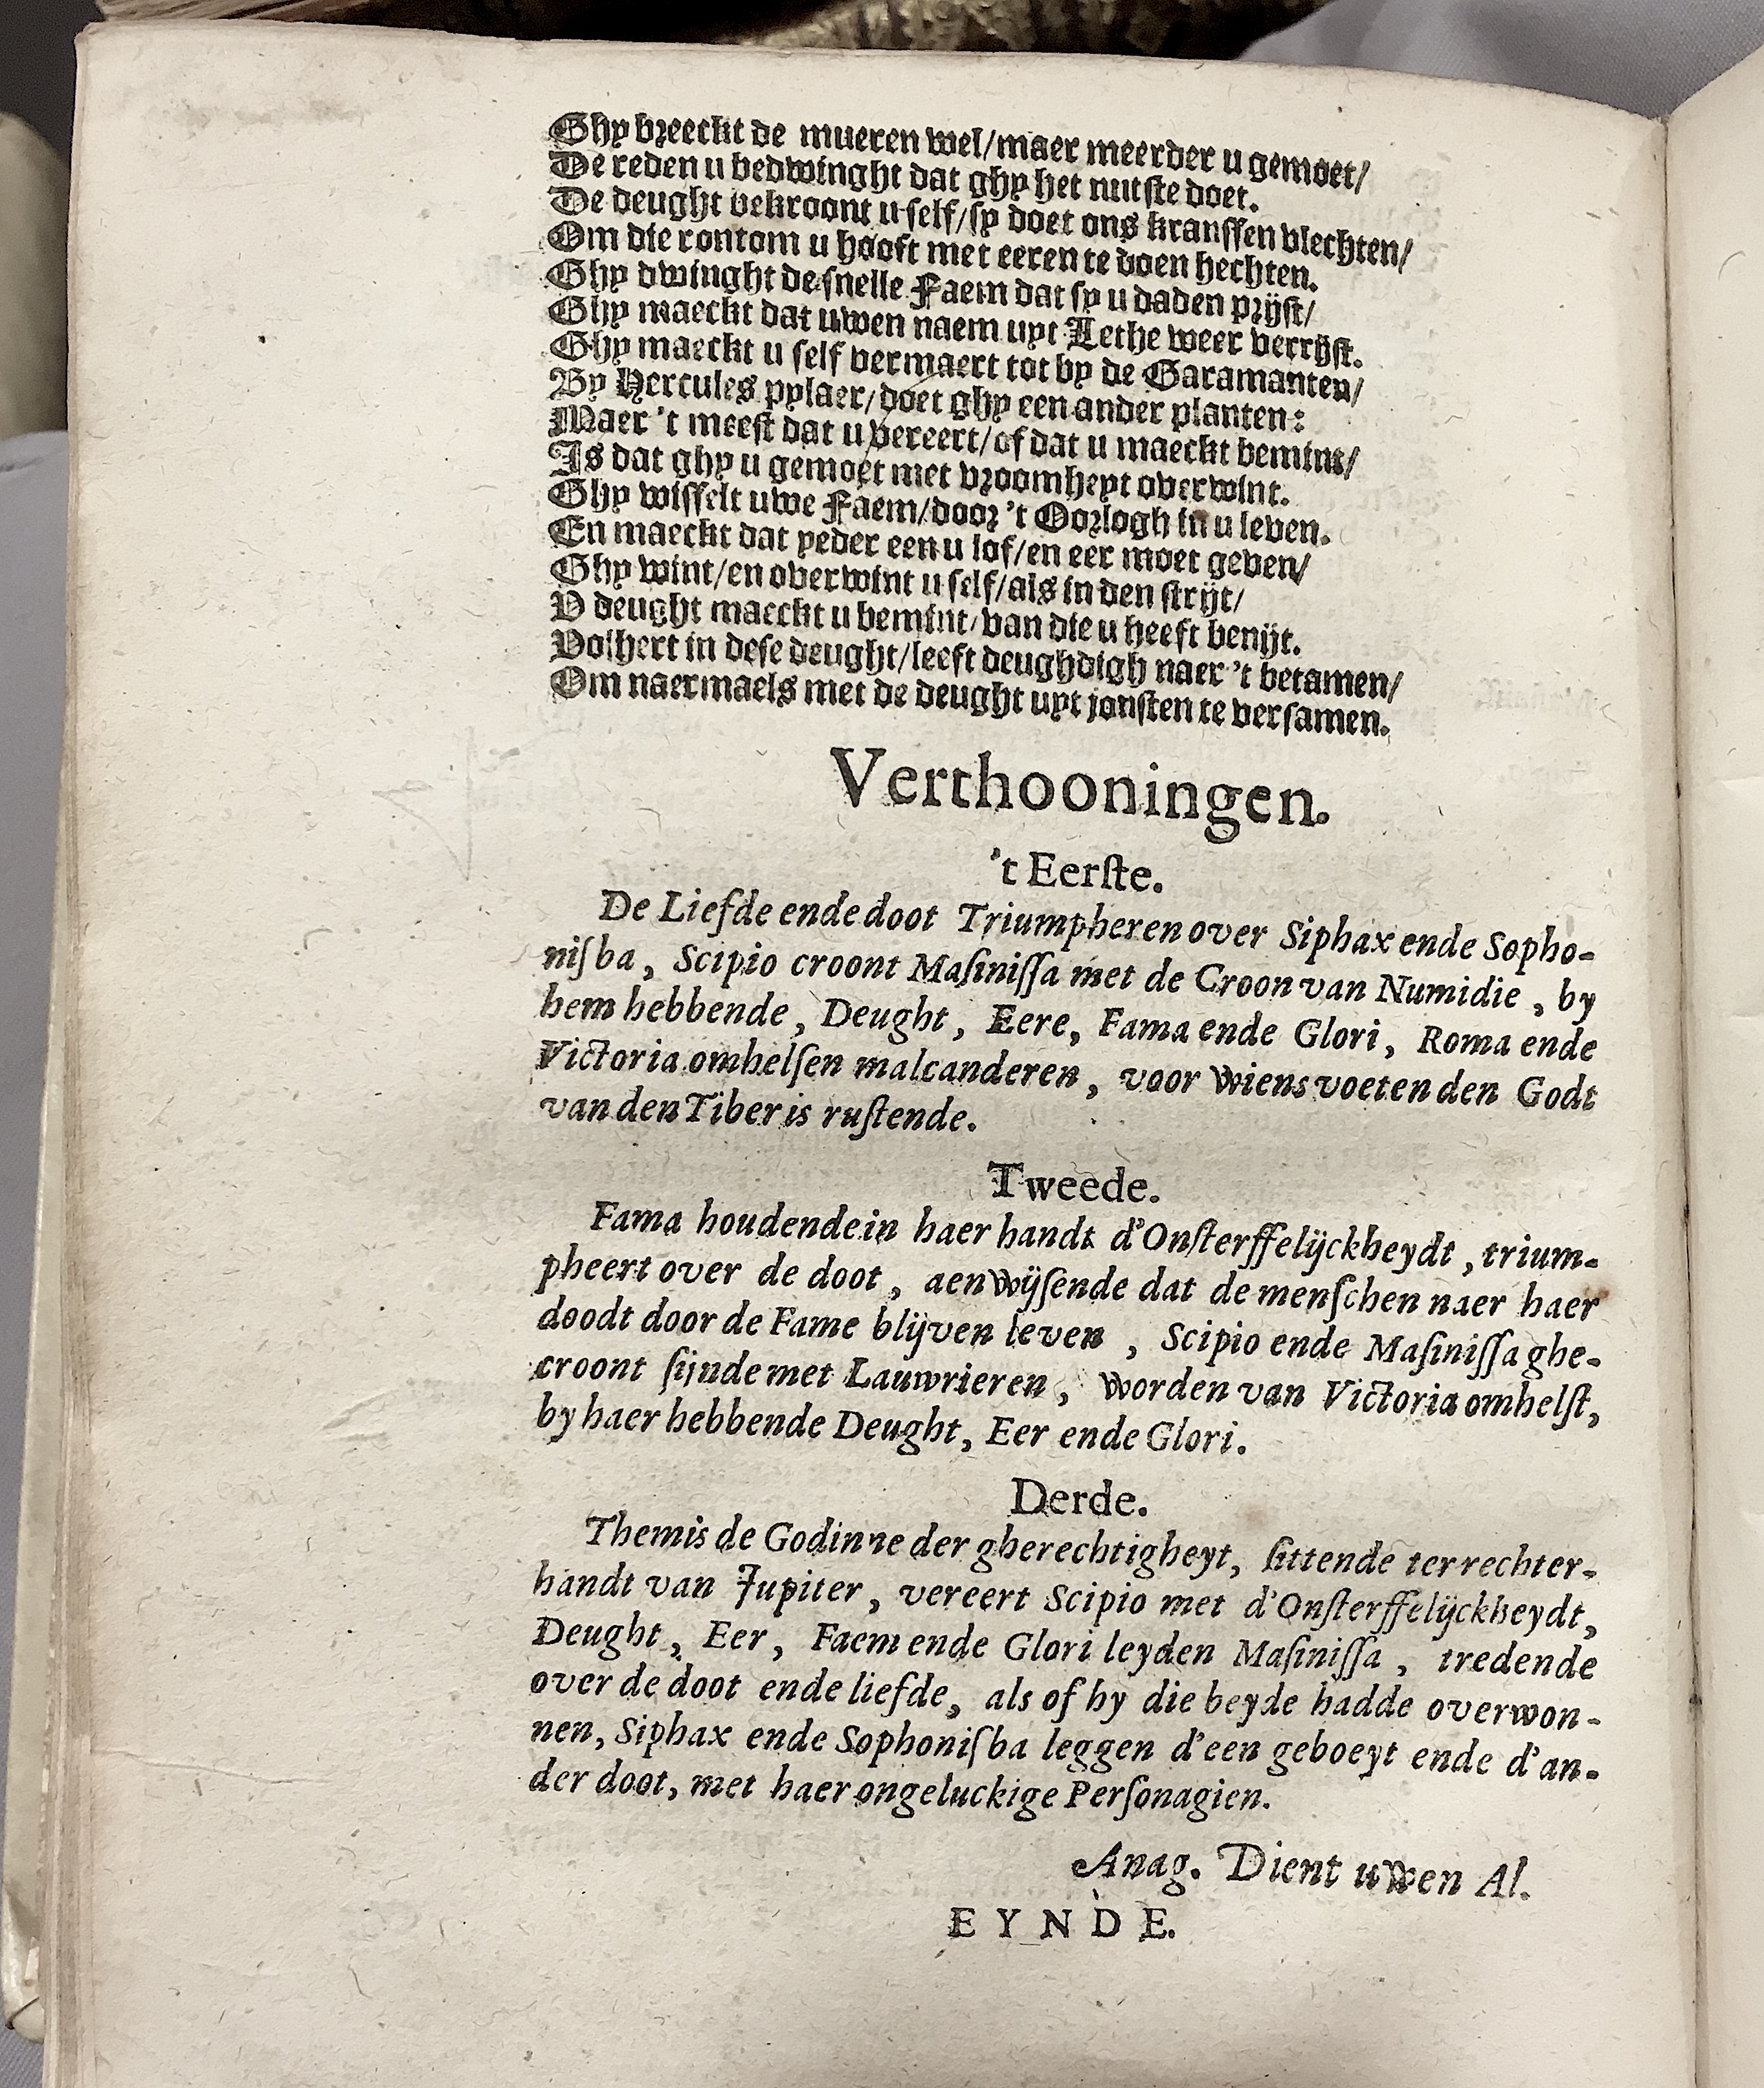 Ghy breeckt de mueren wel/maer meerder u gemoet/
De reden u bedwinght dat ghy het nutste doet.
De deught bekroont u self/sy doet ons kranssen vlechten/
Om die rontom u hooft met eeren te doen hechten.
Ghy dwinght de snelle Faem dat sy u daden prijst/
Ghy maeckt dat uwen naem uyt Lethe weer verrijst.
Ghy maeckt u self vermaert tot by de Garamanten/
By Hercules pylaer/doet ghy een ander planten:
Maer 't meest dat u vereert/of dat u maeckt bemint/
Is dat ghy u gemoet met vroomheyt overwint.
Ghy wisselt uwe Faem/door 't Oorlogh in u leven.
En maeckt dat yeder een u lof/en eer moet geven/
Ghy wint/en overwint u self/als in den strijt/
V deught maeckt u bemint/van die u heeft benijt.
Volhert in dese deught/leeft deughdigh naer 't betamen/
Om naermaels met de deught uyt jonsten te versamen.
Verthooningen.
't Eerste.
De Liefde ende doot Triumpheren over Siphax ende Sopho-
nisba, Scipio croont Masinissa met de Croon van Numidie, by
hem hebbende, Deught, Eere, Fama ende Glori, Roma ende
Victoria omhelsen malcanderen, voor wiens voeten den Godt
van den Tiber is rustende.
Tweede.
Fama houdende in haer handt d'Onsterffelijckheydt, trium-
pheert over de doot, aenwijsende dat de menschen naer haer
doodt door de Fame blijven leven, Scipio ende Masinissa ghe-
croont sijnde met Lauwrieren, worden van Victoria omhelst,
by haer hebbende Deught, Eer ende Glori.
Derde.
Themis de Godinne der gherechtigheyt, sittende ter rechter-
handt van Jupiter, vereert Scipio met d'Onsterffelijckheydt,
Deught, Eer, Faem ende Glori leyden Masinissa, tredende
over de doot ende liefde, als of hy die beyde hadde overwon-
nen, Siphax ende Sophonisba leggen d'een geboeyt ende d'an-
der doot, met haer ongeluckige Personagien.
Anag. Dient uwen Al.
EYNDE.